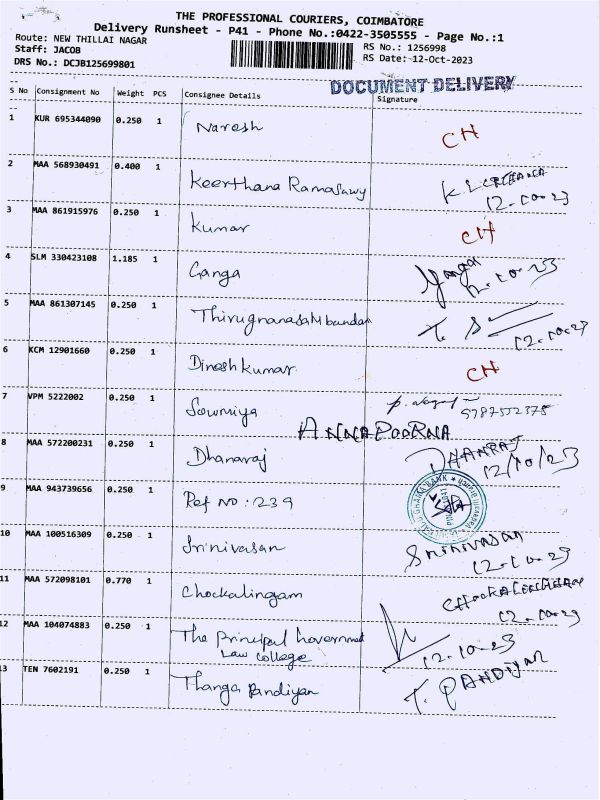 THE PROFESSIONAL COURIERS, COIMBATORE
Delivery Runsheet - P41 - Phone No.:0422-3505555 - Page No.:1
Route: NEW THILLAI NAGAR
RS No.: 1256998
Staff: JACOB
RS Date:-12-Oct-2023
DRS No.: DCJB125699801
DOCUMENT DELIVERY
S No Consignment No Weight PCS Consignee Details Signature
1 KUR 695344090 0.250 1 Naresh CH
2 MAA 568930491 0.400 1 Keerthana Ramasawy
12-10-23
3 MAA 861915976 0.250 1 Kumar CH
4 SLM 330423108 1.185 1 Ganga Ganga
12-10-23
5 MAA 861307145 0.250 1 Thirugnanasambandan T. S
12-10-23
6 KCM 12901660 0.250 1 Dinesh kumar CH
7 VPM 5222002 0.250 1 Sowmiya
ANNAPOORNA
8 MAA 572200231 0.250 1 Dhanaraj DHANRAJ
12/10/23
9 MAA 943739656 0.250 1 Ref NO : 239
10 MAA 100516309 0.250 1 Srinivasan Srinivasan
12-10-23
11 MAA 572098101 0.770 1 Chockalingam
12-10-23
12 MAA 104074883 0.250 1 The Principal Government
Law College
12-10-23
13 TEN 7602191 0.250 1 Thanga Pandiyan T. PANDIYAN